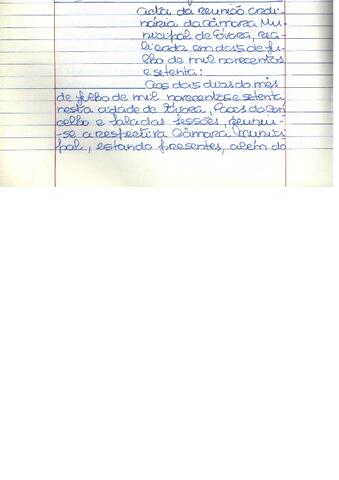 Acta da reunião ordi-
nária da Câmara Mu-
nicipal de Évora, rea-
lizada em dois de ju-
lho de mil novecentos
e setenta:
Aos dois dias do mês
de julho de mil novecentos e setenta
nesta cidade de Évora, Paços do Con-
celho e sala das sessões, reuniu-
-se a respectiva Câmara Munici-
pal, estando presentes, além do